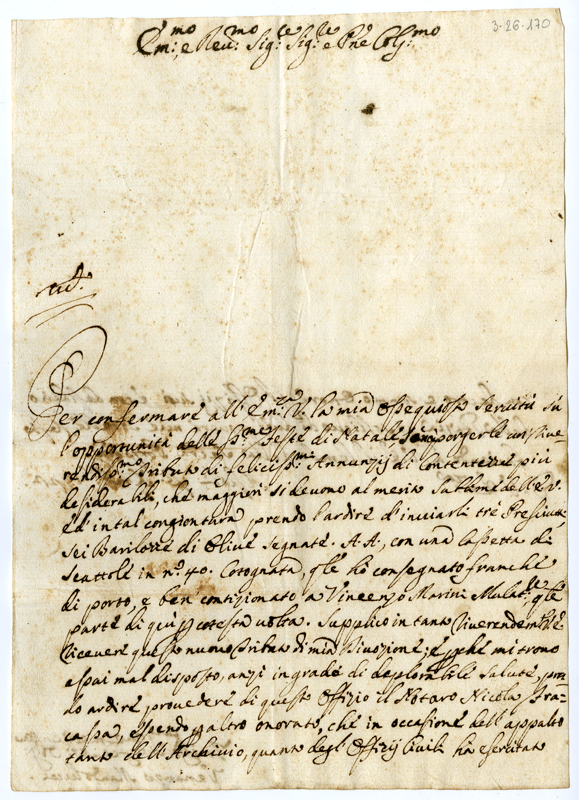 3-26-170
Em:mo e Rev:mo Sig:re Sig:re e Pne Col:mo
Per confermare all'Em:za V. la mia ossequiosa servitù su
l'opportunità delle S:me Feste di Natale porgerle un rive
rendis:mo tributo di felicis:mi Annunzij di contentezze più
desiderabili, che maggiori si devono al merito sublime dell'E.V.
ed in tal congiontura prendo l'ardire d'inviarli trè Presciut,
sei Barilozzi di Olive segnate A.A., con una cassetta di
Scattole in n:o 40. Cotognata, q'le hò consegnato franche
di porto, e ben conzizionato a Vincenzo Marini Mulat:re q'le
parte di qui p cotesta volta. Supplico in tanto riverendem:te V.E.
ricevere questo nuovo tributo di mia divozione; e pche mi trovo
assai mal disposto, anzi in grado di deplorabile salute, pren
do ardire provedere di questo Offizio il Notaro Nicola Fra-
cassa, essendo p altro onorato, che in occasione dell'appalto
tanto dell'Archivio, quanto degl'Offizij Civili ha esercitato